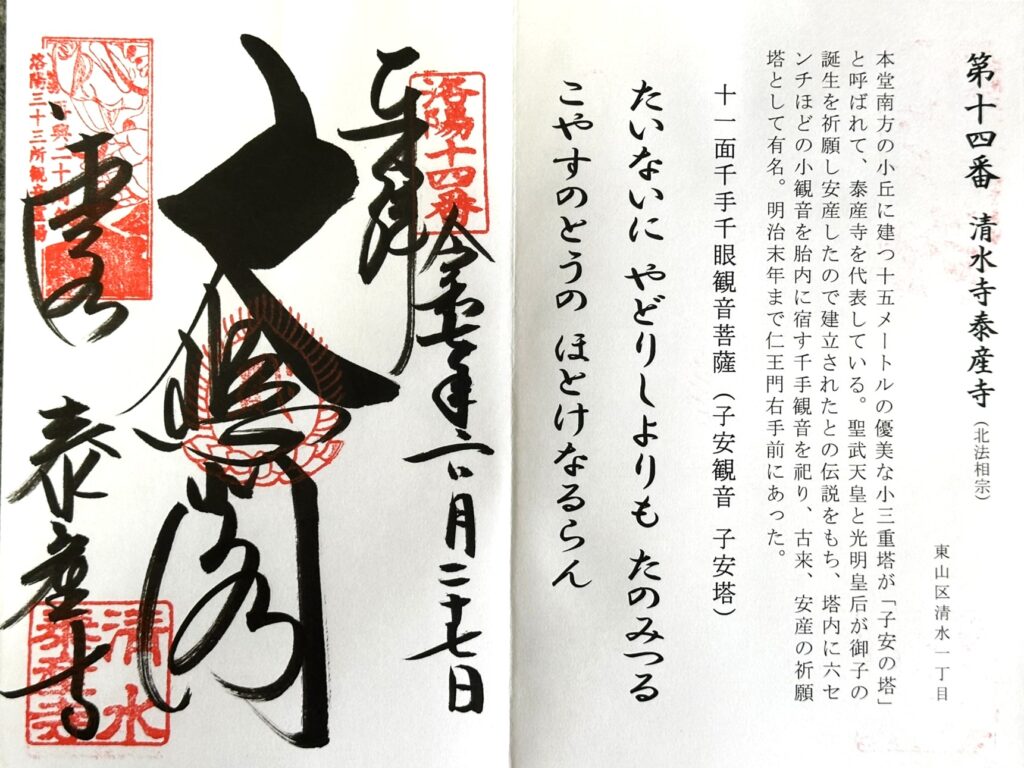 第十四番 清水寺泰産寺（北法相宗）
東山区清水一丁目
本堂南方の小丘に建つ十五メートルの優美な小三重塔が「子安の塔」
と呼ばれて、泰産寺を代表している。聖武天皇と光明皇后が御子の
誕生を祈願し安産したので建立されたとの伝説をもち、塔内に六セ
ンチほどの小観音を胎内に宿す千手観音を祀り、古来、安産の祈願
塔として有名。明治末年まで仁王門右手前にあった。
十一面千手千眼観音菩薩（子安観音 子安塔）
たいないに やどりしよりも たのみつる
こやすのとうの ほとけなるらん
洛陽十四番
奉拝
令和七年六月二十七日
大悲閣
洛陽三十三所観音霊場
泰産寺
清水
泰産寺